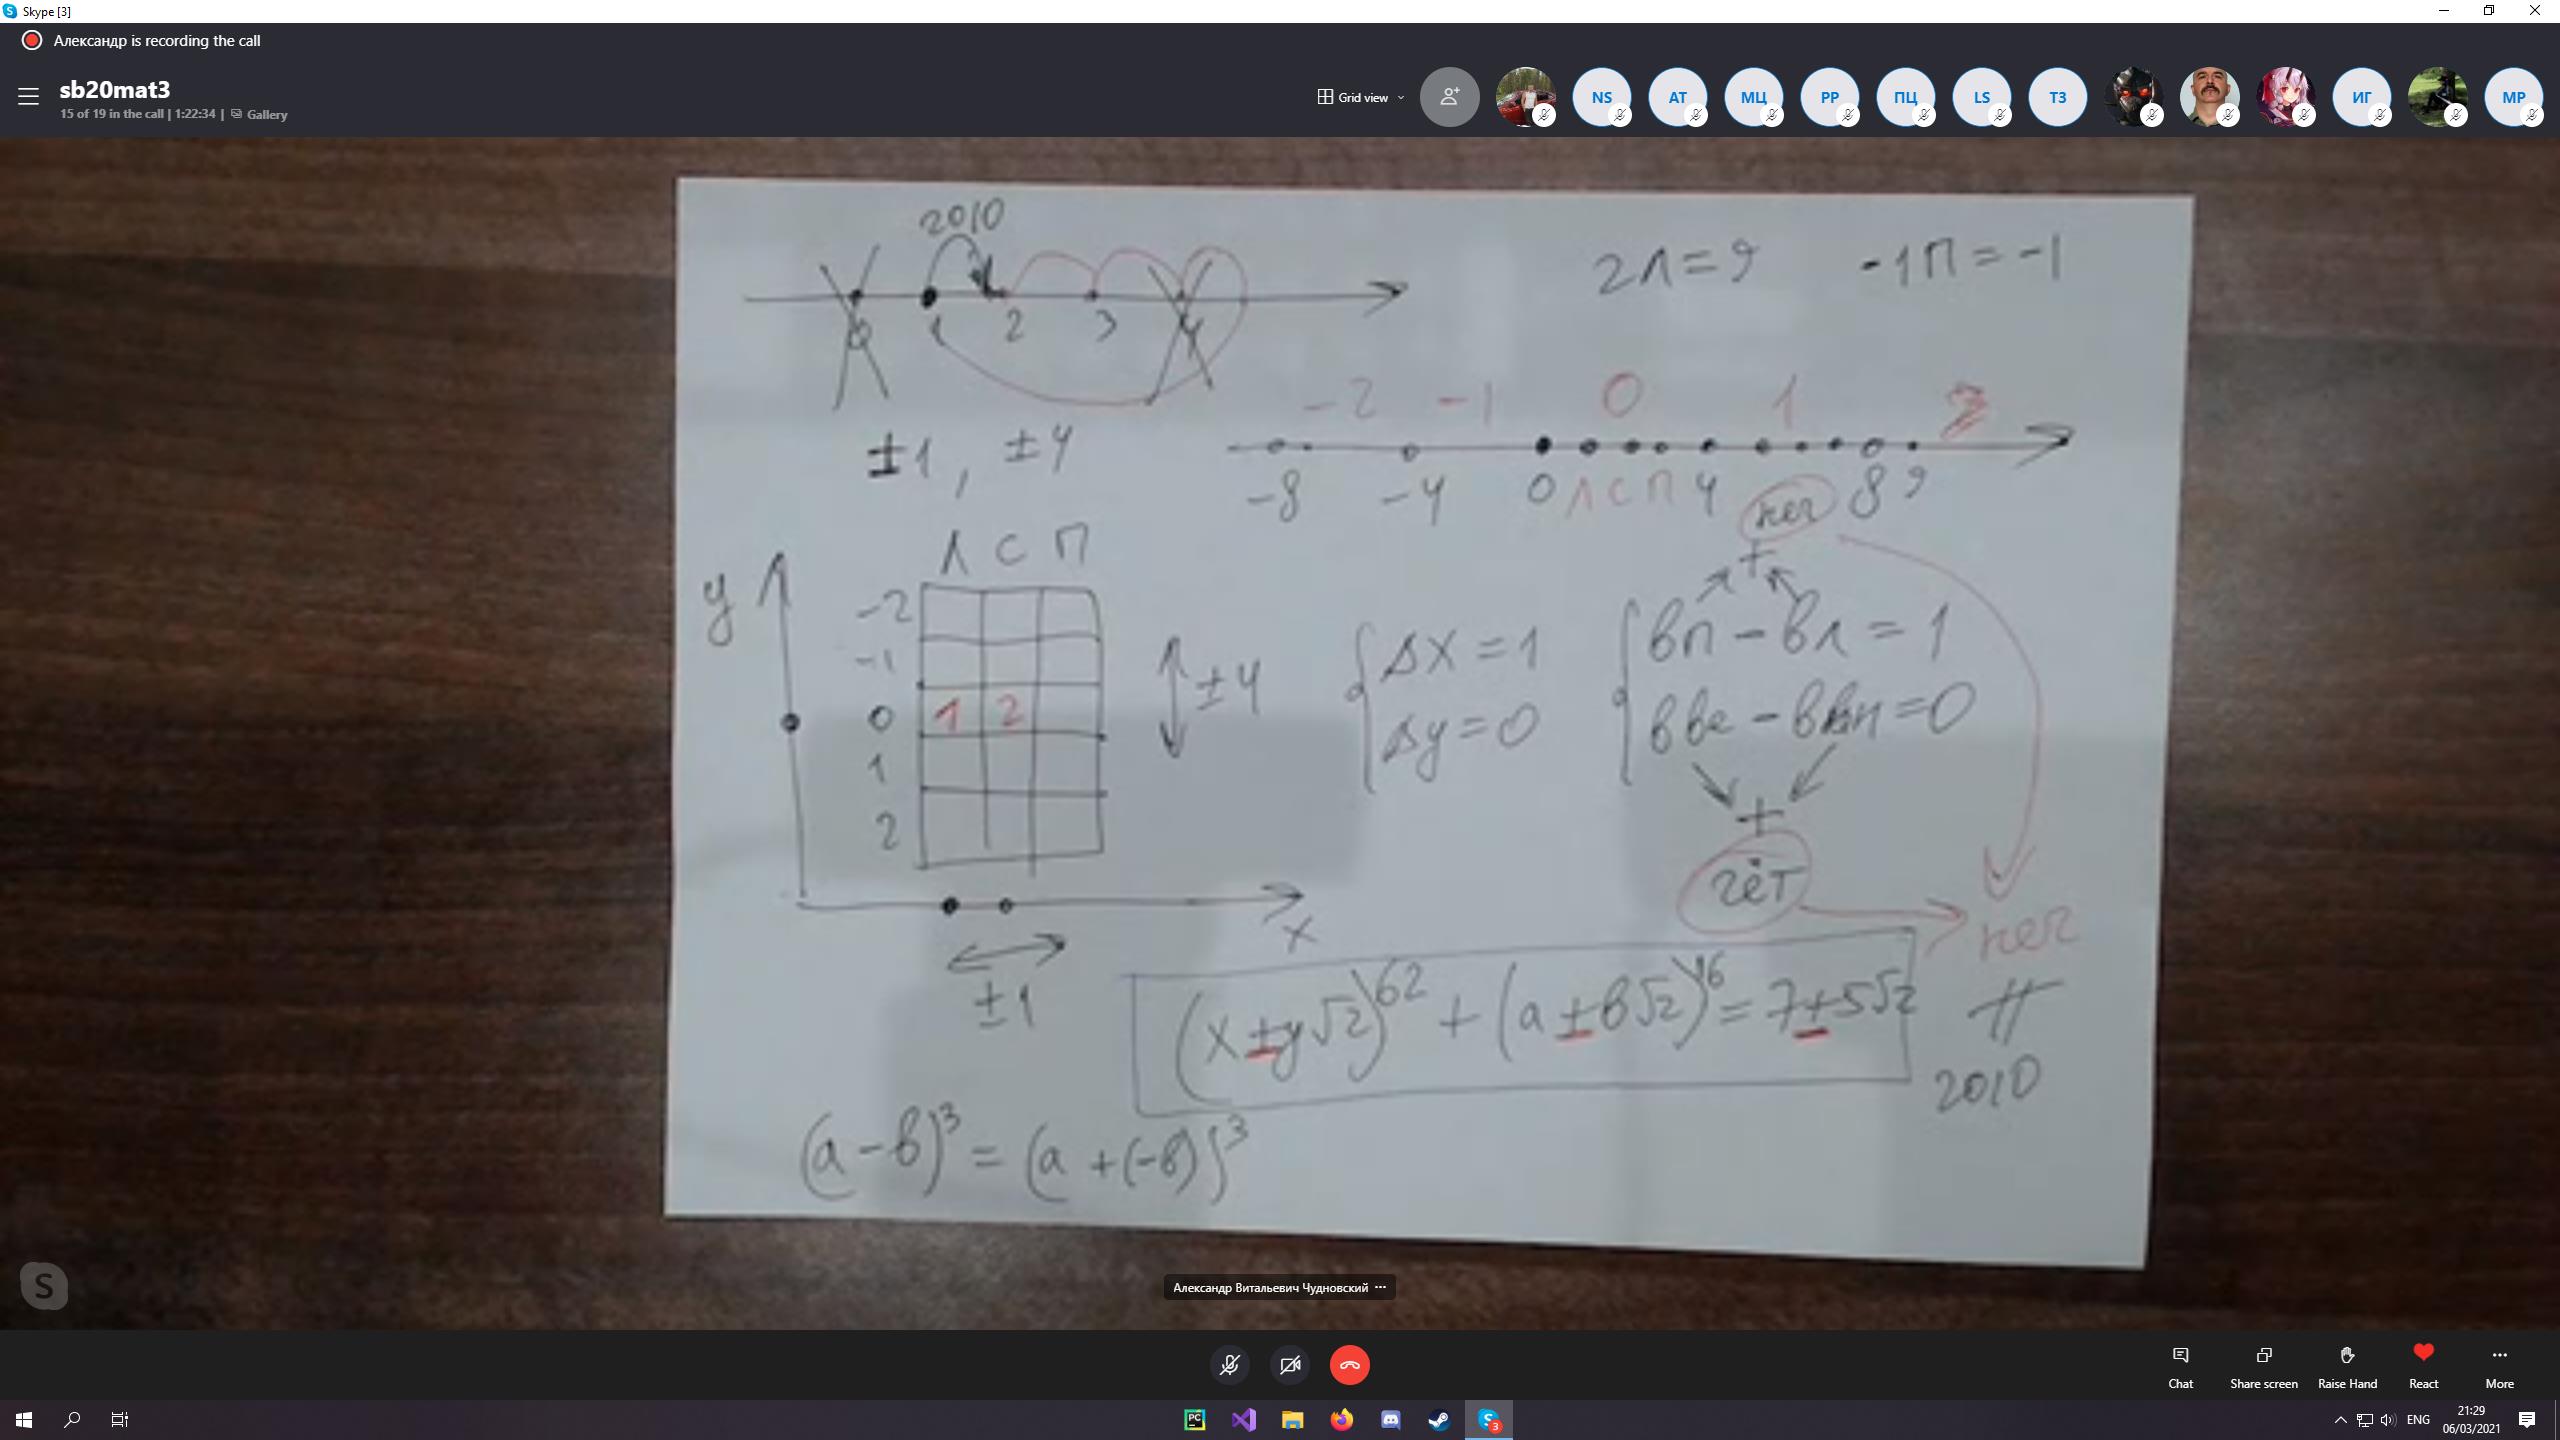 Skype [3]
Александр is recording the call
sb20mat3
15 of 19 in the call | 1:22:34 | Gallery
Grid view
NS
AT
МЦ
PP
ПЦ
LS
ТЗ
ИГ
MP
2010
0 1 2 3 4
2Л=9 -1П=-1
±1, ±4
-2 -1 0 1 2
-8 -4 0 Л С П 4 8 9
неч
+
Л С П
y
-2
-1
0 1 2
1
2
±4
Δx=1
Δy=0
вп-вл=1
вве-ввн=0
+
чёт
неч
x
±1
(x±y√2)^62+(a±b√2)^16=7±5√2
#
2010
(a-b)^3=(a+(-b))^3
Александр Витальевич Чудновский
Chat
Share screen
Raise Hand
React
More
PC
3
ENG
21:29
06/03/2021